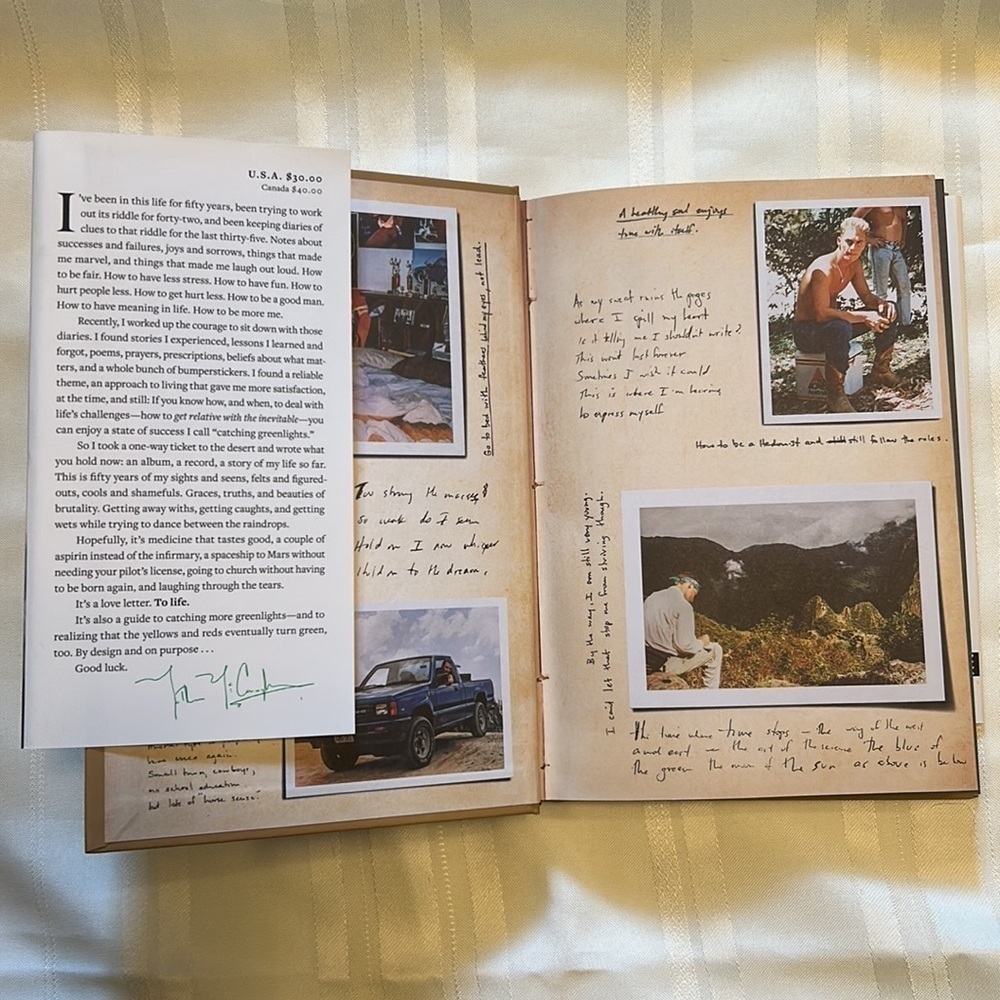 U.S.A. $30.00
Canada $40.00
I've been in this life for fifty years, been trying to work
out its riddle for forty-two, and been keeping diaries of
clues to that riddle for the last thirty-five. Notes about
successes and failures, joys and sorrows, things that made
me marvel, and things that made me laugh out loud. How
to be fair. How to have less stress. How to have fun. How to
hurt people less. How to get hurt less. How to be a good man.
How to have meaning in life. How to be more me.
Recently, I worked up the courage to sit down with those
diaries. I found stories I experienced, lessons I learned and
forgot, poems, prayers, prescriptions, beliefs about what mat-
ters, and a whole bunch of bumperstickers. I found a reliable
theme, an approach to living that gave me more satisfaction,
at the time, and still: If you know how, and when, to deal with
life's challenges—how to get relative with the inevitable—you
can enjoy a state of success I call "catching greenlights."
So I took a one-way ticket to the desert and wrote what
you hold now: an album, a record, a story of my life so far.
This is fifty years of my sights and seens, felts and figured-
outs, cools and shamefuls. Graces, truths, and beauties of
brutality. Getting away withs, getting caughts, and getting
wets while trying to dance between the raindrops.
Hopefully, it's medicine that tastes good, a couple of
aspirin instead of the infirmary, a spaceship to Mars without
needing your pilot's license, going to church without having
to be born again, and laughing through the tears.
It's a love letter. To life.
It's also a guide to catching more greenlights—and to
realizing that the yellows and reds eventually turn green,
too. By design and on purpose . . .
Good luck.
Go to bed with feathers behind my eyes, not lead.
Too strong the masses
so weak do I seem
Hold on I now whisper
hold on to the dream.
once again.
Small town, cowboys,
no school education
but lots of "horse sense."
A healthy soul enjoys
time with itself.
As my sweat rains the pages
where I spill my heart
Is it telling me I shouldn't write?
This wont last forever
Sometimes I wish it could
This is where I'm learning
to express myself
How to be a Hedonist and still follow the rules.
By the way, I am still very young.
I cant let that stop me from striving though.
the time where time stops — the way of the west
and east — the art of the science the blue of
the green the moon of the sun as above is below